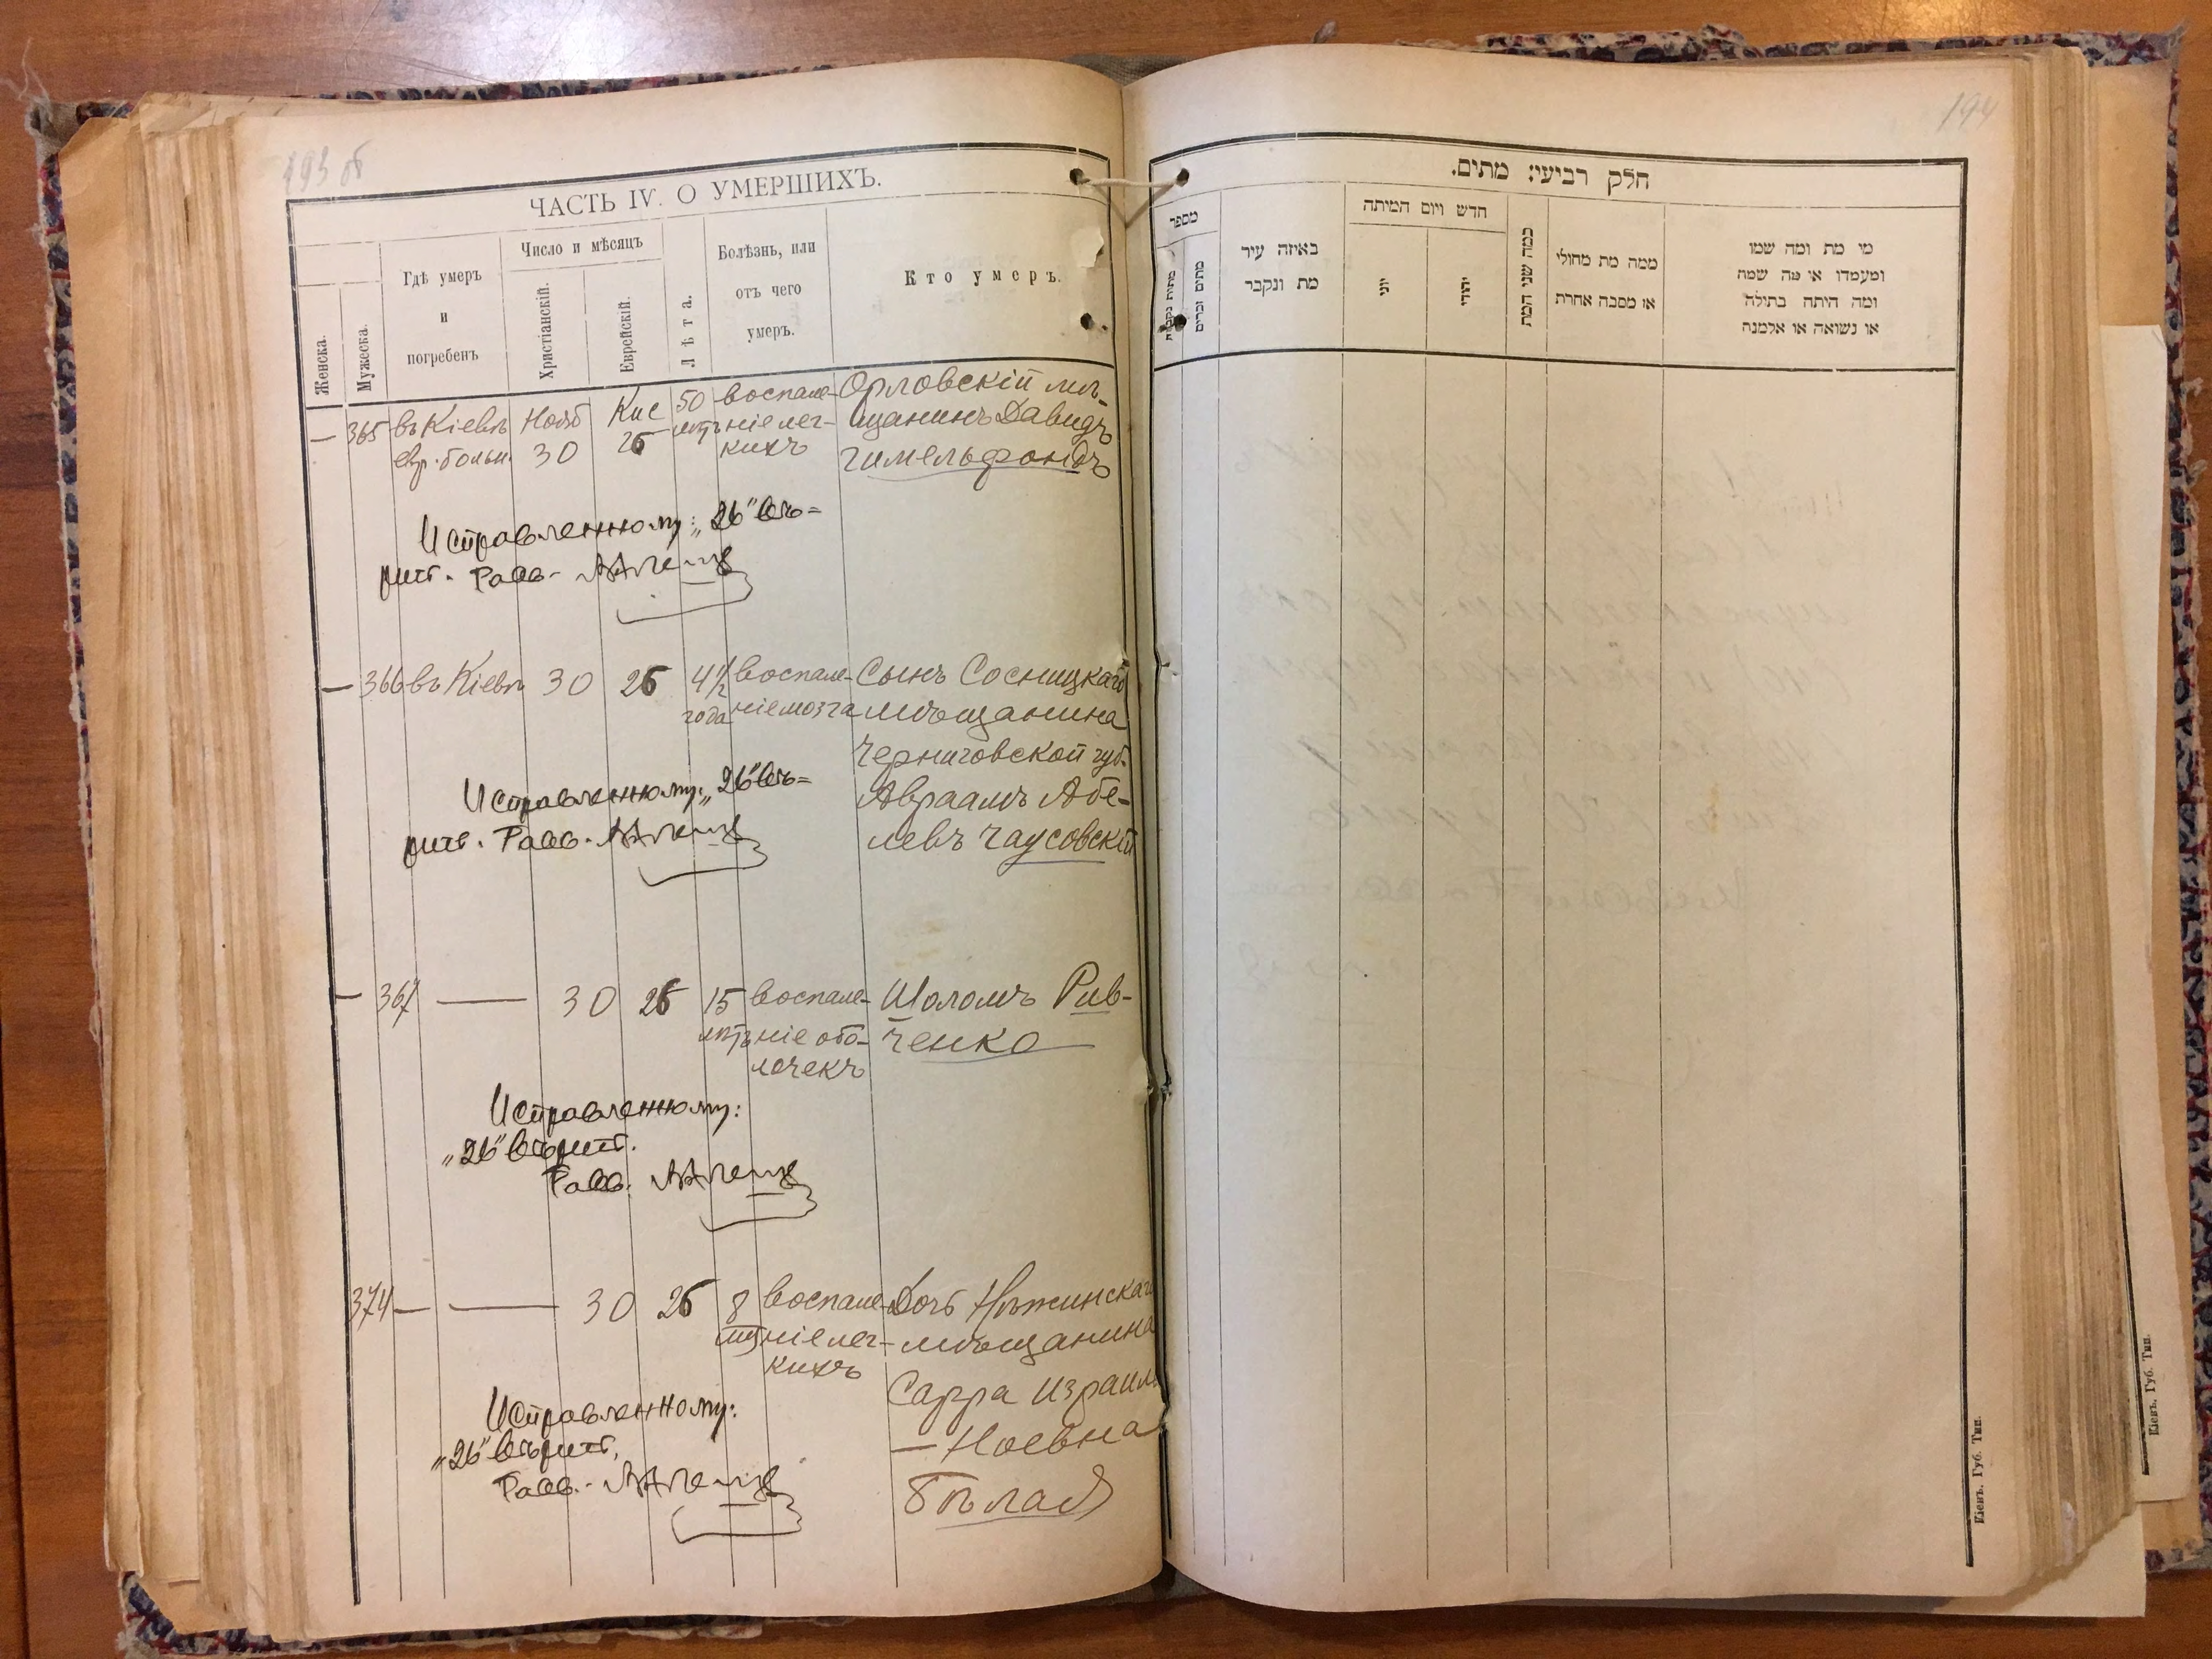 193 об
ЧАСТЬ IV. О УМЕРШИХЪ.
Женска.
Мужеска.
Гдѣ умеръ
и
погребенъ
Число и мѣсяцъ
Христіанскій.
Еврейскій.
Лѣта.
Болѣзнь, или
отъ чего
умеръ.
Кто умеръ.
— 365 въ Кіевѣ Нояб Кис 50 воспале- Орловскій мѣ-
евр. больн. 30 26 лѣтъ ніе лег- щанинъ Давидъ
кихъ Гимельфондъ
Исправленному: „26" вѣ=
рить. Равв.
— 366 въ Кіевѣ 30 26 4½ воспале- Сынъ Сосницкаго
года ніе мозга мѣщанина
Черниговской губ.
Авраамъ Абе-
левъ Чаусовскій
Исправленному: „26" вѣ=
рить. Равв.
— 367 — 30 26 15 воспале- Шоломъ Рив-
лѣтъ ніе обо- ченко
лочекъ
Исправленному:
„26" вѣрить.
Равв.
374 — — 30 26 8 воспале- Дочь Нѣжинскаго
лѣтъ ніе лег- мѣщанина
кихъ Сарра Израил
— Ноевна
Бѣлая
Исправленному:
„26" вѣрить.
Равв.
194
חלק רביעי: מתים.
מספר
מתות נקבות
מתים זכרים
באיזה עיר
מת ונקבר
חדש ויום המיתה
יוני
יהודי
כמה שני המת
ממה מת מחולי
או מסבה אחרת
מי מת ומה שמו
ומעמדו או מה שמה
ומה היתה בתולה
או נשואה או אלמנה
Кіевъ. Губ. Тип.
Кіевъ. Губ. Тип.